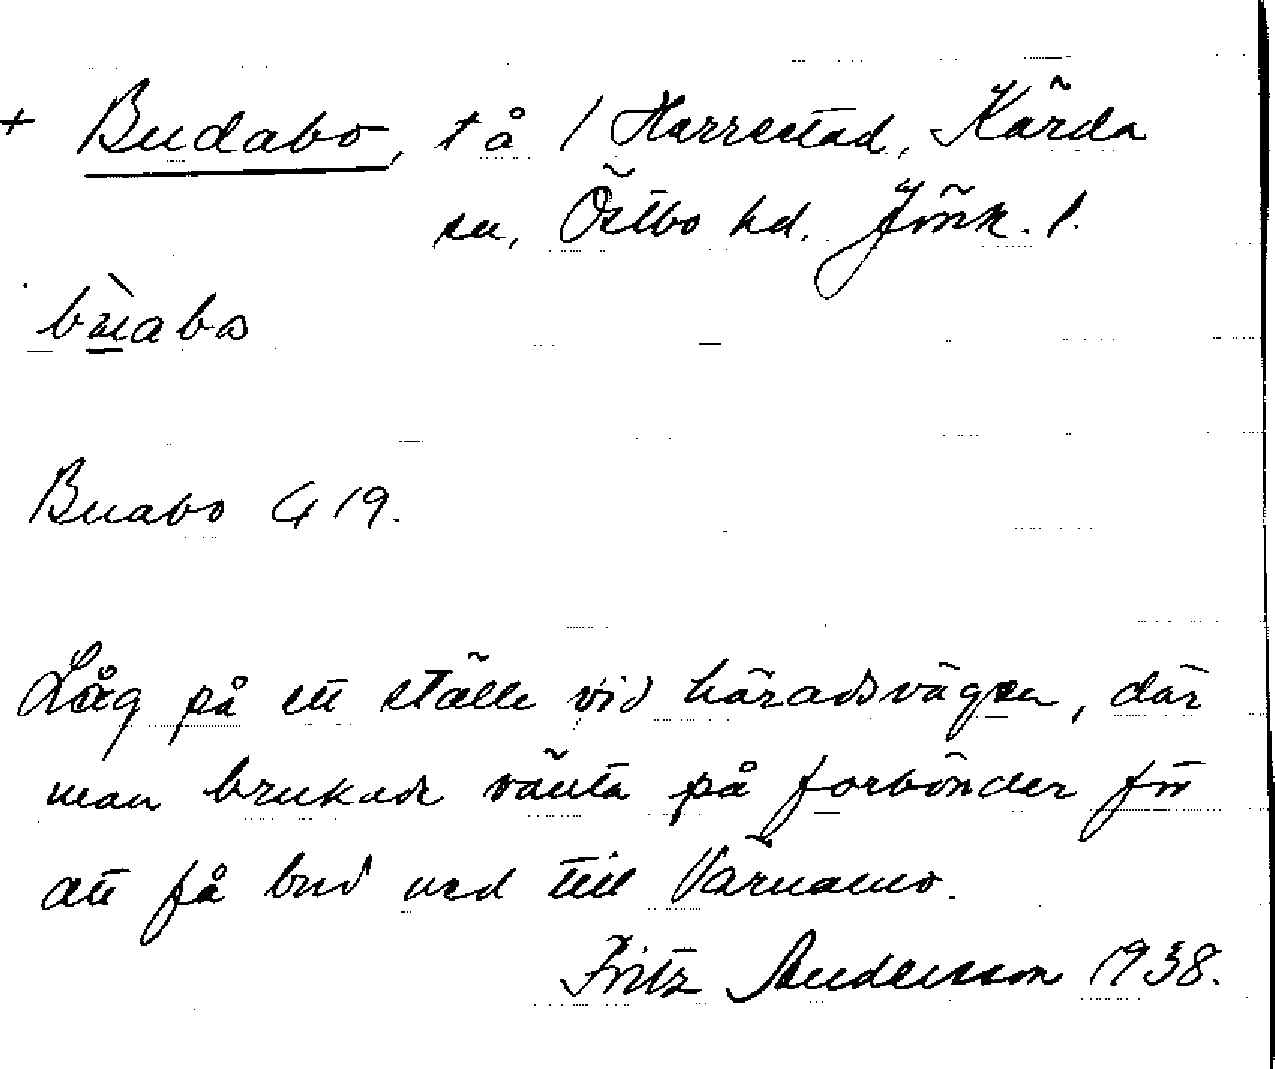 + Budabo, t å / Harrestad, Kärda
sn, Östbo hd. Jönk. l.
bùabo
Buabo G 19.
Låg på ett ställe vid häradsvägen, där
man brukade vänta på forbönder för
att få bud ned till Värnamo.
Fritz Andersson 1938.